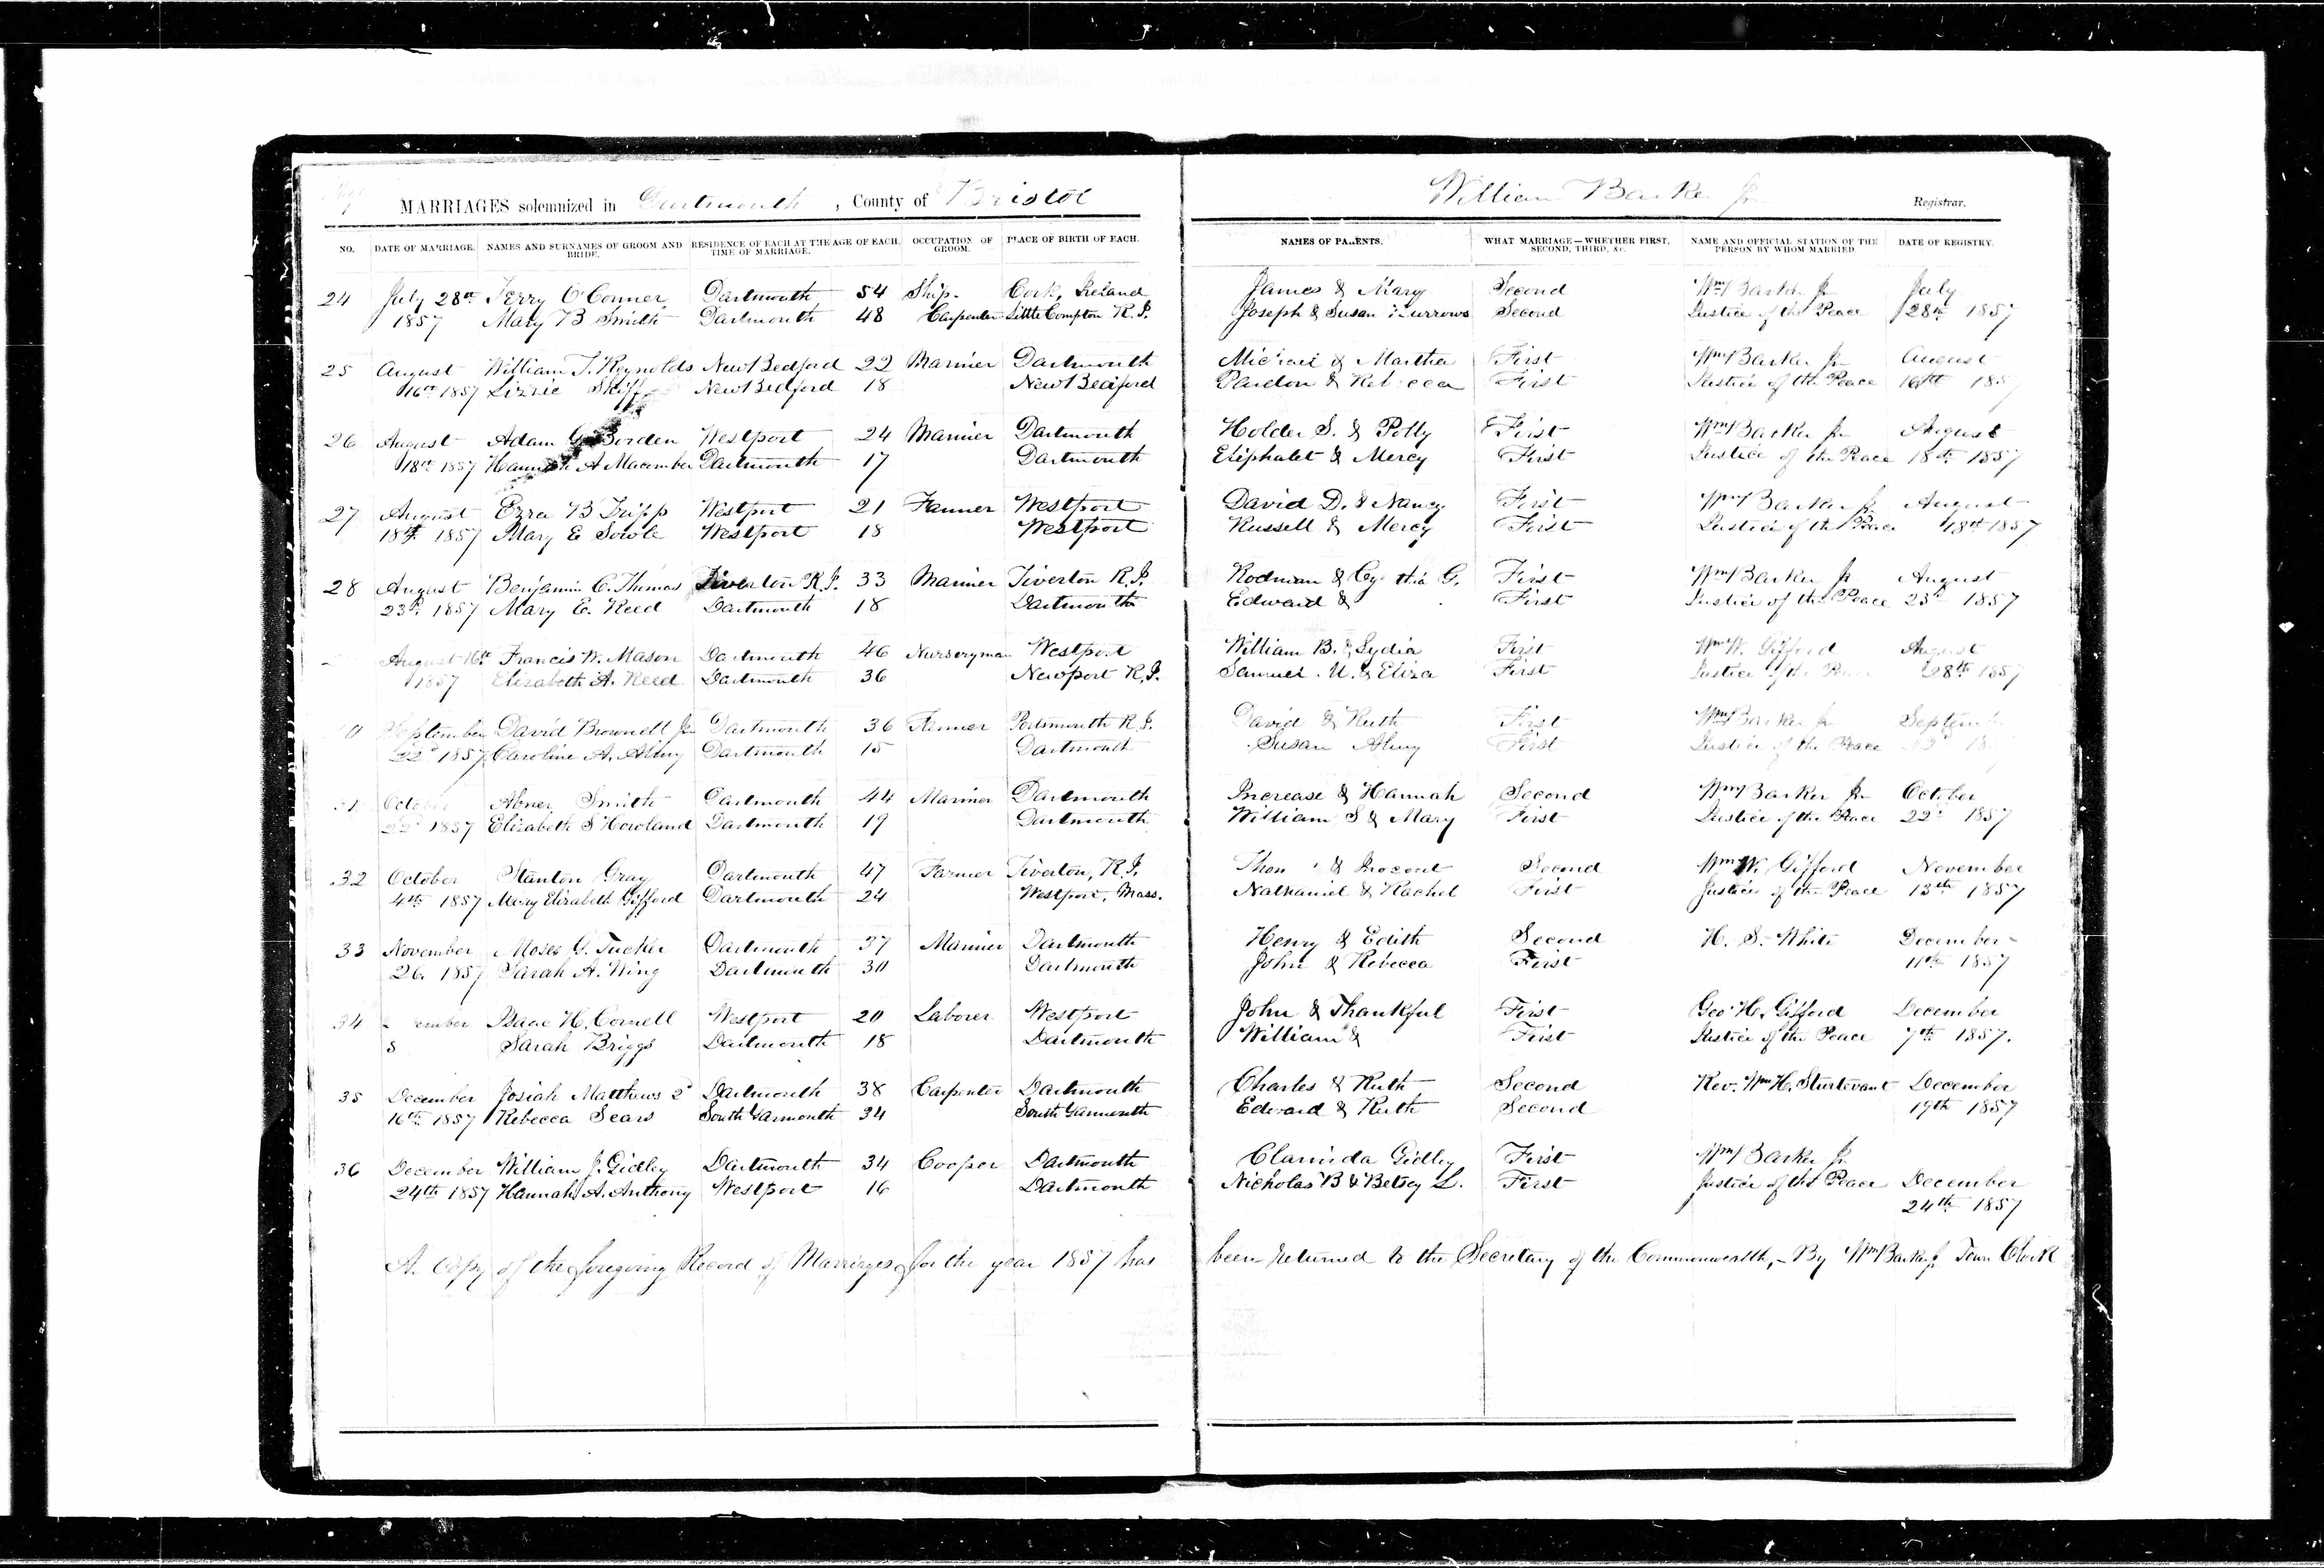 MARRIAGES solemnized in Dartmouth, County of Bristol William Barker Jr. Registrar.
NO. DATE OF MARRIAGE. NAMES AND SURNAMES OF GROOM AND BRIDE. RESIDENCE OF EACH AT THE TIME OF MARRIAGE. AGE OF EACH. OCCUPATION OF GROOM. PLACE OF BIRTH OF EACH. NAMES OF PARENTS. WHAT MARRIAGE—WHETHER FIRST, SECOND, THIRD, &c. NAME AND OFFICIAL STATION OF THE PERSON BY WHOM MARRIED DATE OF REGISTRY.
24 July 28th Jerry O'Conner Dartmouth 54 Ship- Cork, Ireland James & Mary Second Wm Barker Jr July
1857 Mary B Smith Dartmouth 48 Carpenter Little Compton R.I. Joseph & Susan Burrows Second Justice of the Peace 28th 1857
25 August William T. Reynolds New Bedford 22 Mariner Dartmouth & Martha First Wm Barker Jr August
16th 1857 Lizzie Skiff New Bedford 18 New Bedford Pardon & Rebecca First Justice of the Peace 16th 1857
26 August Adam G. Borden Westport 24 Mariner Dartmouth Holder S. & Polly First Wm Barker Jr August
18th 1857 Hannah A Macomber Dartmouth 17 Dartmouth Eliphalet & Mercy First Justice of the Peace 18th 1857
27 August Ezra B Tripp Westport 21 Farmer Westport David D. & Nancy First Wm Barker Jr August
18th 1857 Mary E Sowle Westport 18 Westport Russell & Mercy First Justice of the Peace 18th 1857
28 August Benjamin C. Thomas Tiverton R.I. 33 Mariner Tiverton R.I. Rodman & Cynthia G. First Wm Barker Jr August
23d 1857 Mary E. Reed Dartmouth 18 Dartmouth Edward & First Justice of the Peace 23d 1857
August 16th Francis W. Mason Dartmouth 46 Nurseryman Westport William B. & Lydia First Wm W. Gifford August
1857 Elizabeth A. Reed Dartmouth 36 Newport R.I. Samuel & Eliza First Justice of the Peace 28th 1857
September David Brownell Jr Dartmouth 36 Farmer Portsmouth R.I. David & Ruth First Wm Barker Jr
22d 1857 Caroline A. Almy Dartmouth 15 Dartmouth Susan Almy First Justice of the Peace
October Abner Smith Dartmouth 44 Mariner Dartmouth Increase & Hannah Second Wm Barker Jr October
22d 1857 Elizabeth S Howland Dartmouth 19 Dartmouth William S & Mary First Justice of the Peace 22d 1857
32 October Stanton Gray Dartmouth 47 Farmer Tiverton, R.I. Second Wm W. Gifford November
4th 1857 Mary Elizabeth Gifford Dartmouth 24 Westport, Mass. Nathaniel & Rachel First Justice of the Peace 13th 1857
33 November Moses G. Tucker Dartmouth 37 Mariner Dartmouth Henry & Edith Second H. S. White December
26. 1857 Sarah A. Wing Dartmouth 30 Dartmouth John & Rebecca First 11th 1857
34 Isaac H. Cornell Westport 20 Laborer Westport John & Thankful First Geo. H. Gifford December
Sarah Briggs Dartmouth 18 Dartmouth William & First Justice of the Peace 7th 1857.
35 December Josiah Matthews 2d Dartmouth 38 Carpenter Dartmouth Charles & Ruth Second Rev. Wm H. Sturtevant December
16th 1857 Rebecca Sears South Yarmouth 34 South Yarmouth Edward & Ruth Second 19th 1857
36 December William J. Gidley Dartmouth 34 Cooper Dartmouth Clarinda Gidley First Wm Barker Jr
24th 1857 Hannah A. Anthony Westport 16 Dartmouth Nicholas B & Betsey L. First Justice of the Peace December
24th 1857
A. Copy of the foregoing Record of Marriages for the year 1857 has been returned to the Secretary of the Commonwealth,- By Wm Barker Jr Town Clerk